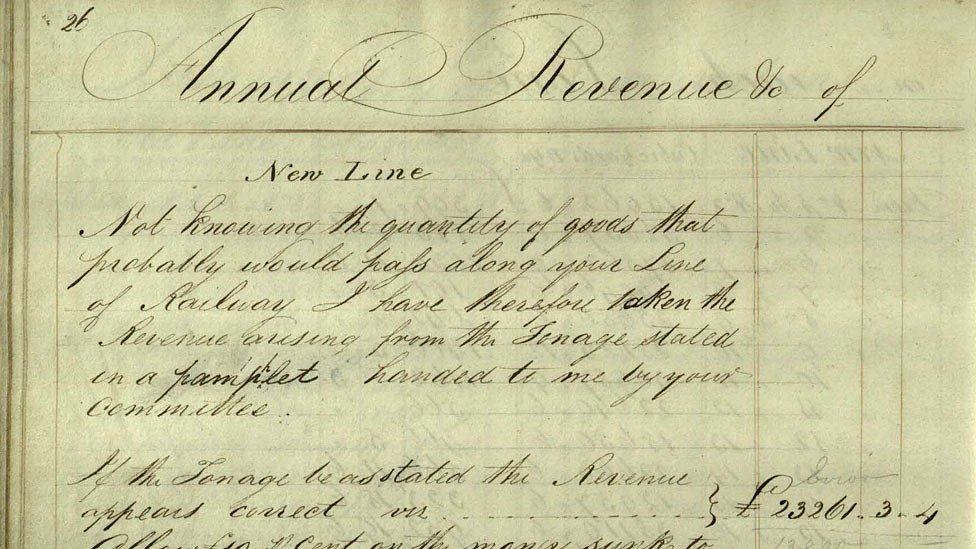 26
Annual Revenue &c of
New Line
Not knowing the quantity of goods that
probably would pass along your Line
of Railway I have therefore taken the
Revenue arising from the Tonage stated
in a pamplet handed to me by your
Committee.
If the Tonage be as stated the Revenue
appears correct viz } £ 23261..3..4
on the money sunk to